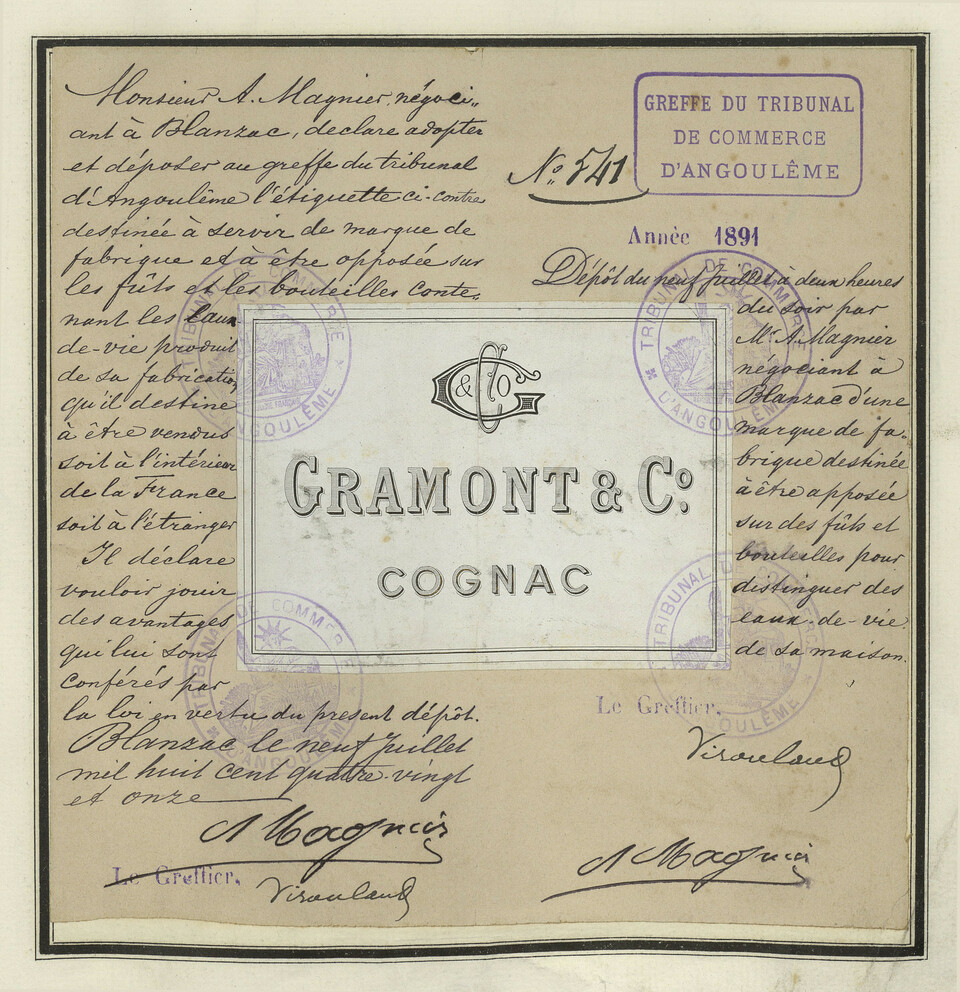 Monsieur A. Magnier, négoci-
ant à Blanzac, declare adopter
et déposer au greffe du tribunal
d'Angoulême l'étiquette ci-contre
destinée à servir de marque de
fabrique et à être opposée sur
les fûts et les bouteilles conte-
nant les eaux
de-vie produit
de sa fabrication
qu'il destine
à être vendus
soit à l'intérieur
de la France
soit à l'étranger
Il déclare
vouloir jouir
des avantages
qui lui sont
conférés par
la loi en vertu du present dépôt.
Blanzac le neuf Juillet
mil huit cent quatre-vingt
et onze
A Magnier
Le Greffier,
GREFFE DU TRIBUNAL
DE COMMERCE
D'ANGOULÊME
No 541
Année 1891
Dépôt du neuf Juillet à deux heures
du soir par
Mr A. Magnier
négociant à
Blanzac d'une
marque de fa-
brique destinée
à être apposée
sur des fûts et
bouteilles pour
distinguer des
eaux-de-vie
de sa maison.
Le Greffier,
A Magnier
G & Co
GRAMONT & Co.
COGNAC
TRIBUNAL DE COMMERCE
D'ANGOULÊME
TRIBUNAL DE COMMERCE
D'ANGOULÊME
TRIBUNAL DE COMMERCE
D'ANGOULÊME
TRIBUNAL DE COMMERCE
D'ANGOULÊME